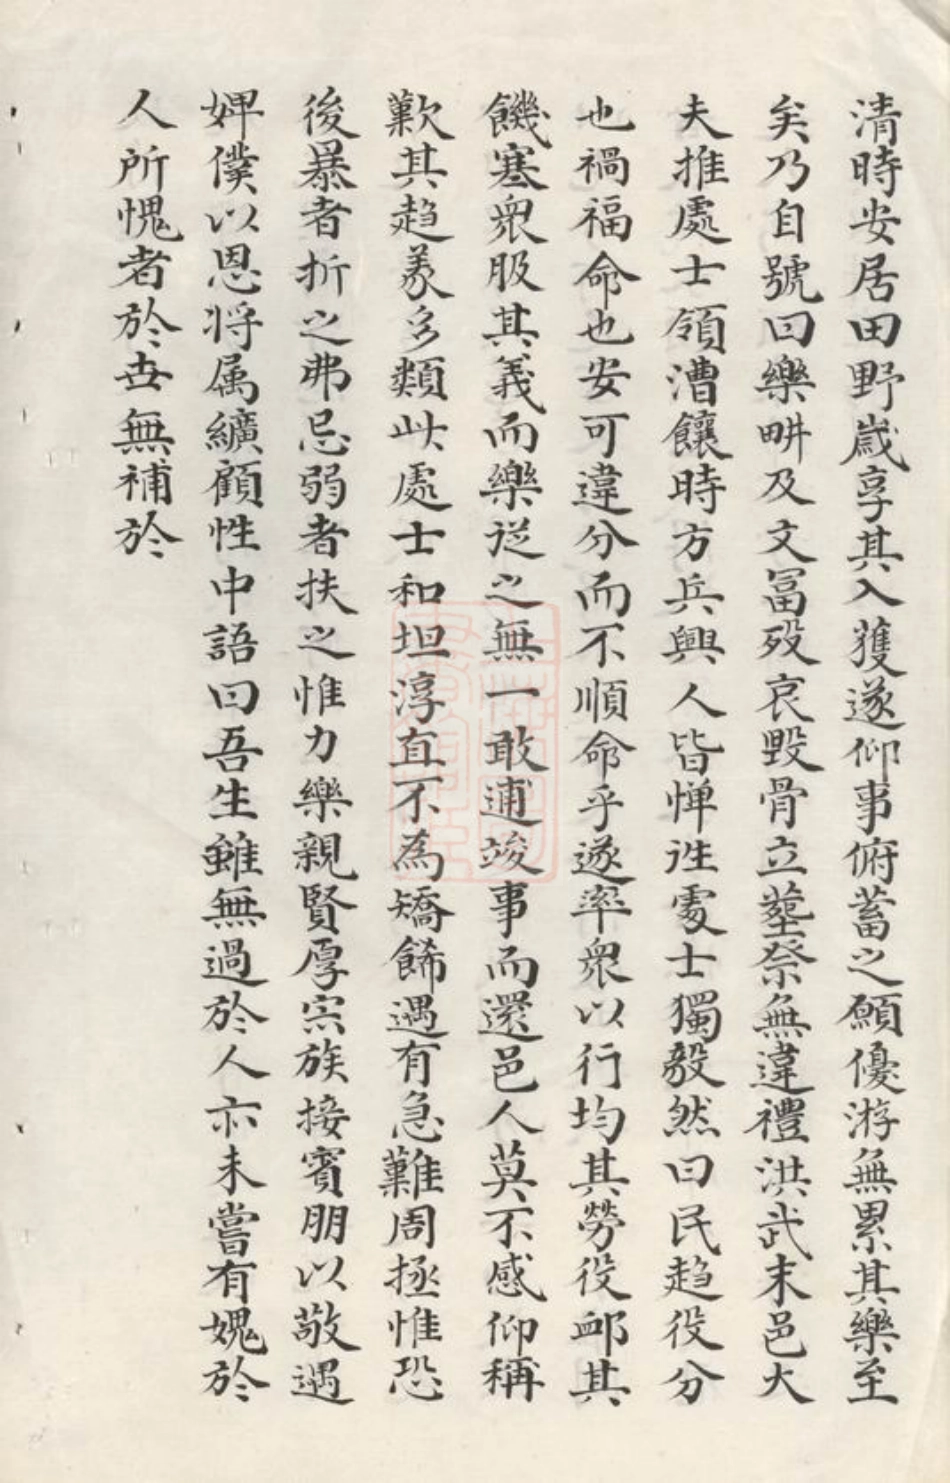 清時安居田野歲享其入獲遂仰事俯蓄之願優游無累其樂至
矣乃自號曰樂畊及文冨歿哀毀骨立塟祭無違禮洪武末邑大
夫推處士領漕饟時方兵興人皆惮徃處士獨毅然曰民趋役分
也禍福命也安可違分而不順命乎遂率衆以行均其勞役邮其
饑塞衆服其義而樂従之無一敢逋竣事而還邑人莫不感仰稱
歎其趋义多類此處士和坦淳直不為矯餙遇有急難周拯惟恐
後暴者折之弗忌弱者扶之惟力樂親賢厚宗族接賓朋以敬遇
婢僕以恩将属纊顧性中語曰吾生雖無過於人亦未嘗有媿於
人所愧者於世無補於